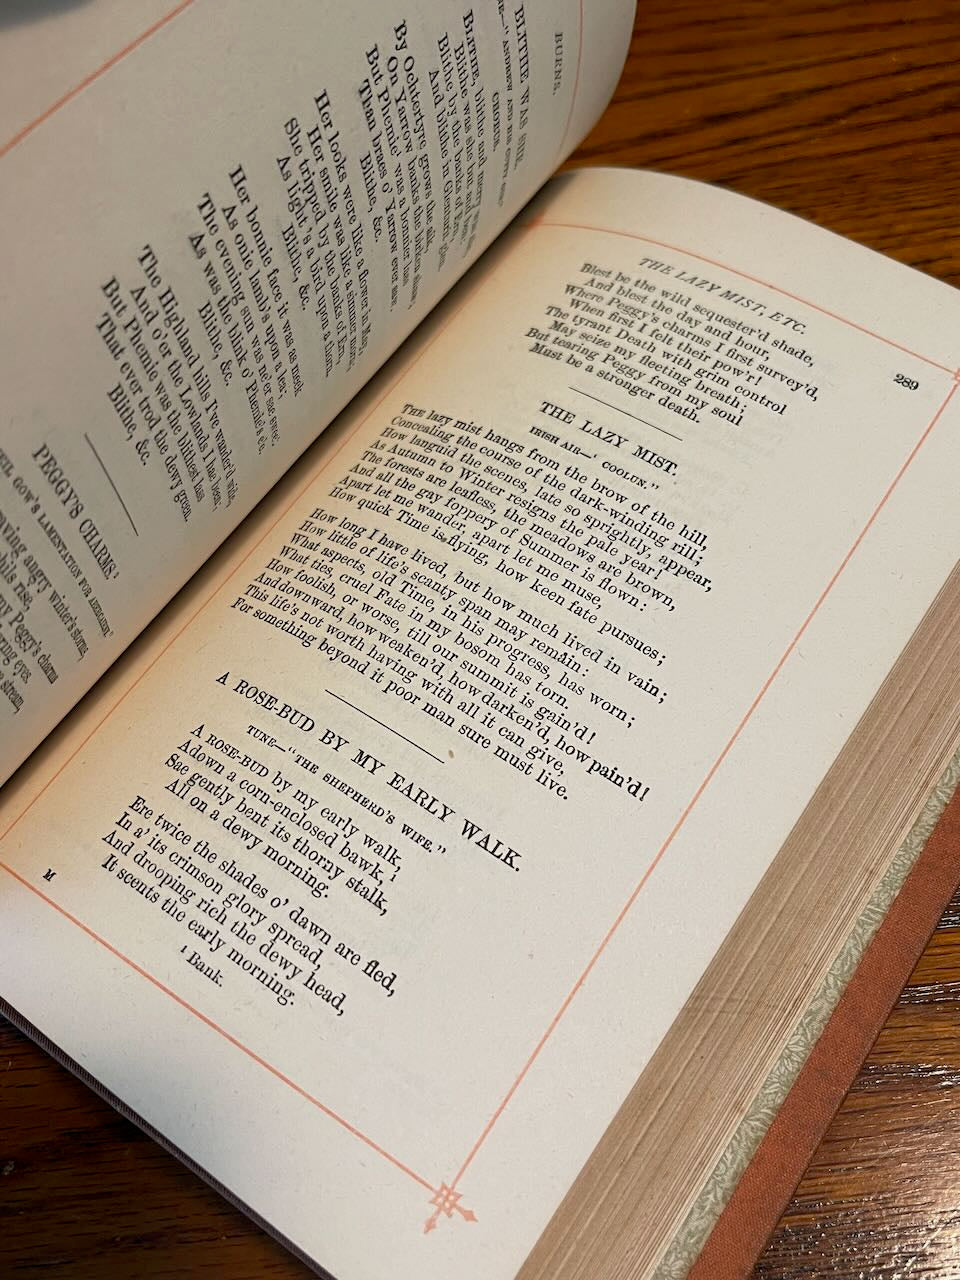 BURNS.
BLITHE WAS SHE.
"ANDREW AND HIS CUTTY GUN."
CHORUS.
BLITHE, blithe and merry was she,
Blithe was she but and ben:
Blithe by the banks of Ern,
And blithe in Glenturit glen.
By Ochtertyre grows the aik,
On Yarrow banks the birken shaw;
But Phemie was a bonnier lass
Than braes o' Yarrow ever saw.
Blithe, &c.
Her looks were like a flower in May,
Her smile was like a simmer morn;
She tripped by the banks of Ern,
As light's a bird upon a thorn.
Blithe, &c.
Her bonnie face it was as meek
As onie lamb's upon a lea;
The evening sun was ne'er sae sweet,
As was the blink o' Phemie's e'e.
Blithe, &c.
The Highland hills I've wander'd wide,
And o'er the Lowlands I hae been;
But Phemie was the blithest lass
That ever trod the dewy green.
Blithe, &c.
PEGGY'S CHARMS.¹
GOW'S LAMENTATION FOR ABERCAIRNY."
angry winter's storms
rise,
Peggy's charms
eyes.
stream,
THE LAZY MIST, ETC.
289
Blest be the wild sequester'd shade,
And blest the day and hour,
Where Peggy's charms I first survey'd,
When first I felt their pow'r!
The tyrant Death with grim control
May seize my fleeting breath;
But tearing Peggy from my soul
Must be a stronger death.
THE LAZY MIST.
IRISH AIR—"COOLUN."
THE lazy mist hangs from the brow of the hill,
Concealing the course of the dark-winding rill;
How languid the scenes, late so sprightly, appear,
As Autumn to Winter resigns the pale year!
The forests are leafless, the meadows are brown,
And all the gay foppery of Summer is flown:
Apart let me wander, apart let me muse,
How quick Time is flying, how keen fate pursues;
How long I have lived, but how much lived in vain;
How little of life's scanty span may remain:
What aspects, old Time, in his progress, has worn;
What ties, cruel Fate in my bosom has torn.
How foolish, or worse, till our summit is gain'd!
And downward, how weaken'd, how darken'd, how pain'd!
This life's not worth having with all it can give,
For something beyond it poor man sure must live.
A ROSE-BUD BY MY EARLY WALK.
TUNE—"THE SHEPHERD'S WIFE."
A ROSE-BUD by my early walk,
Adown a corn-enclosed bawk,¹
Sae gently bent its thorny stalk,
All on a dewy morning.
Ere twice the shades o' dawn are fled,
In a' its crimson glory spread,
And drooping rich the dewy head,
It scents the early morning.
¹ Bank.
M